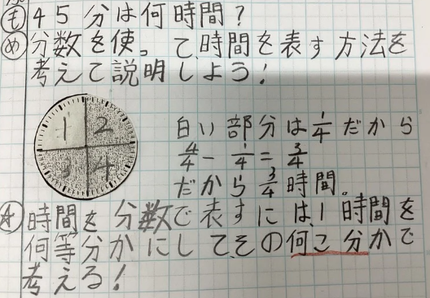 も 45分は何時間?
め 分数を使って、時間を表す方法を
考えて説明しよう!
1 2
3 4
白い部分は1/4だから
4/4-1/4=3/4
だから3/4時間。
ま 時間を分数で表すには、1時間を
何等分かにしてその何こ分かで
考える!